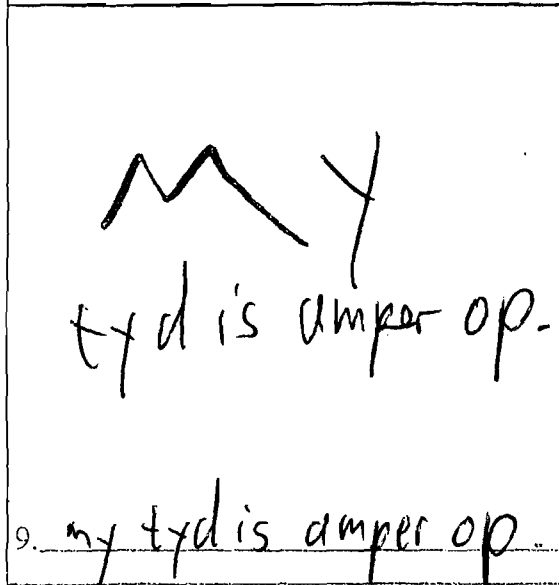 MY
tyd is amper op.
9. my tyd is amper op.